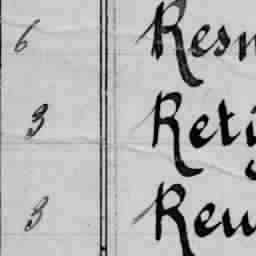 6 Resn
3 Reti
3 Rew